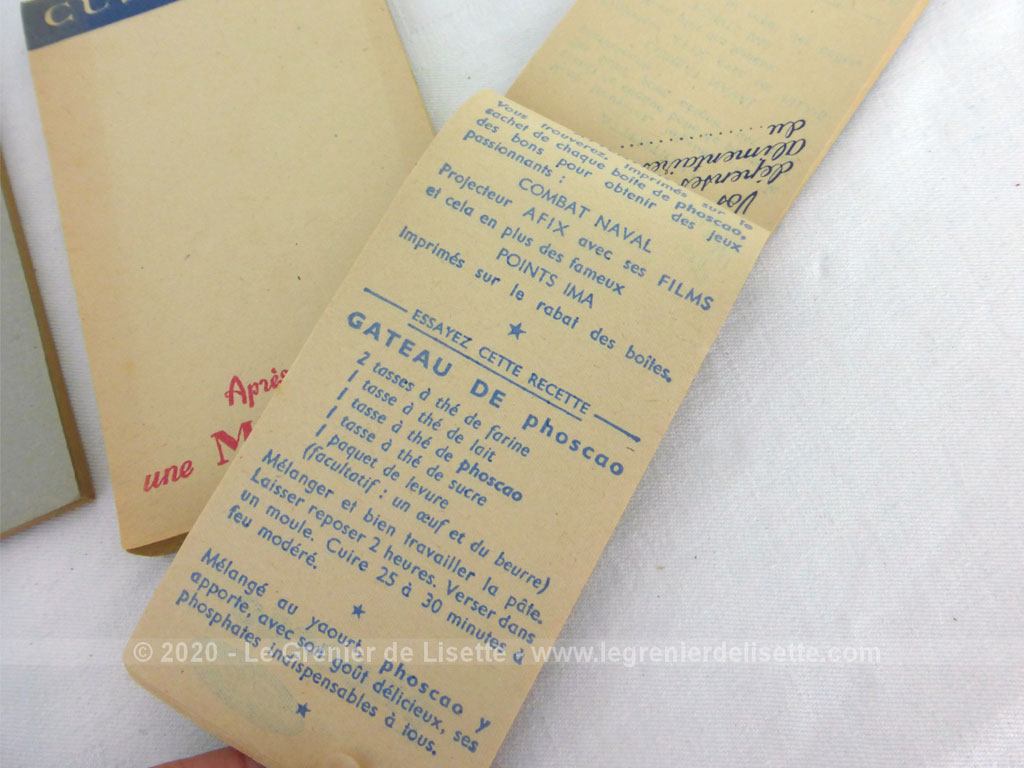 Vous trouverez, imprimés sur le
sachet de chaque boite de phoscao,
des bons pour obtenir des jeux
passionnants :
COMBAT NAVAL
Projecteur AFIX avec ses FILMS
et cela en plus des fameux
POINTS IMA
Imprimés sur le rabat des boîtes.
ESSAYEZ CETTE RECETTE
GATEAU DE phoscao
2 tasses à thé de farine
1 tasse à thé de lait
1 tasse à thé de phoscao
1 tasse à thé de sucre
1 paquet de levure
(facultatif : un œuf et du beurre)
Mélanger et bien travailler la pâte.
Laisser reposer 2 heures. Verser dans
un moule. Cuire 25 à 30 minutes à
feu modéré.
Mélangé au yaourt, phoscao y
apporte, avec son goût délicieux, ses
phosphates indispensables à tous.
Vos
dépenses
alimentaires
du
Après
une
© 2020 - Le Grenier de Lisette - www.legrenierdelisette.com